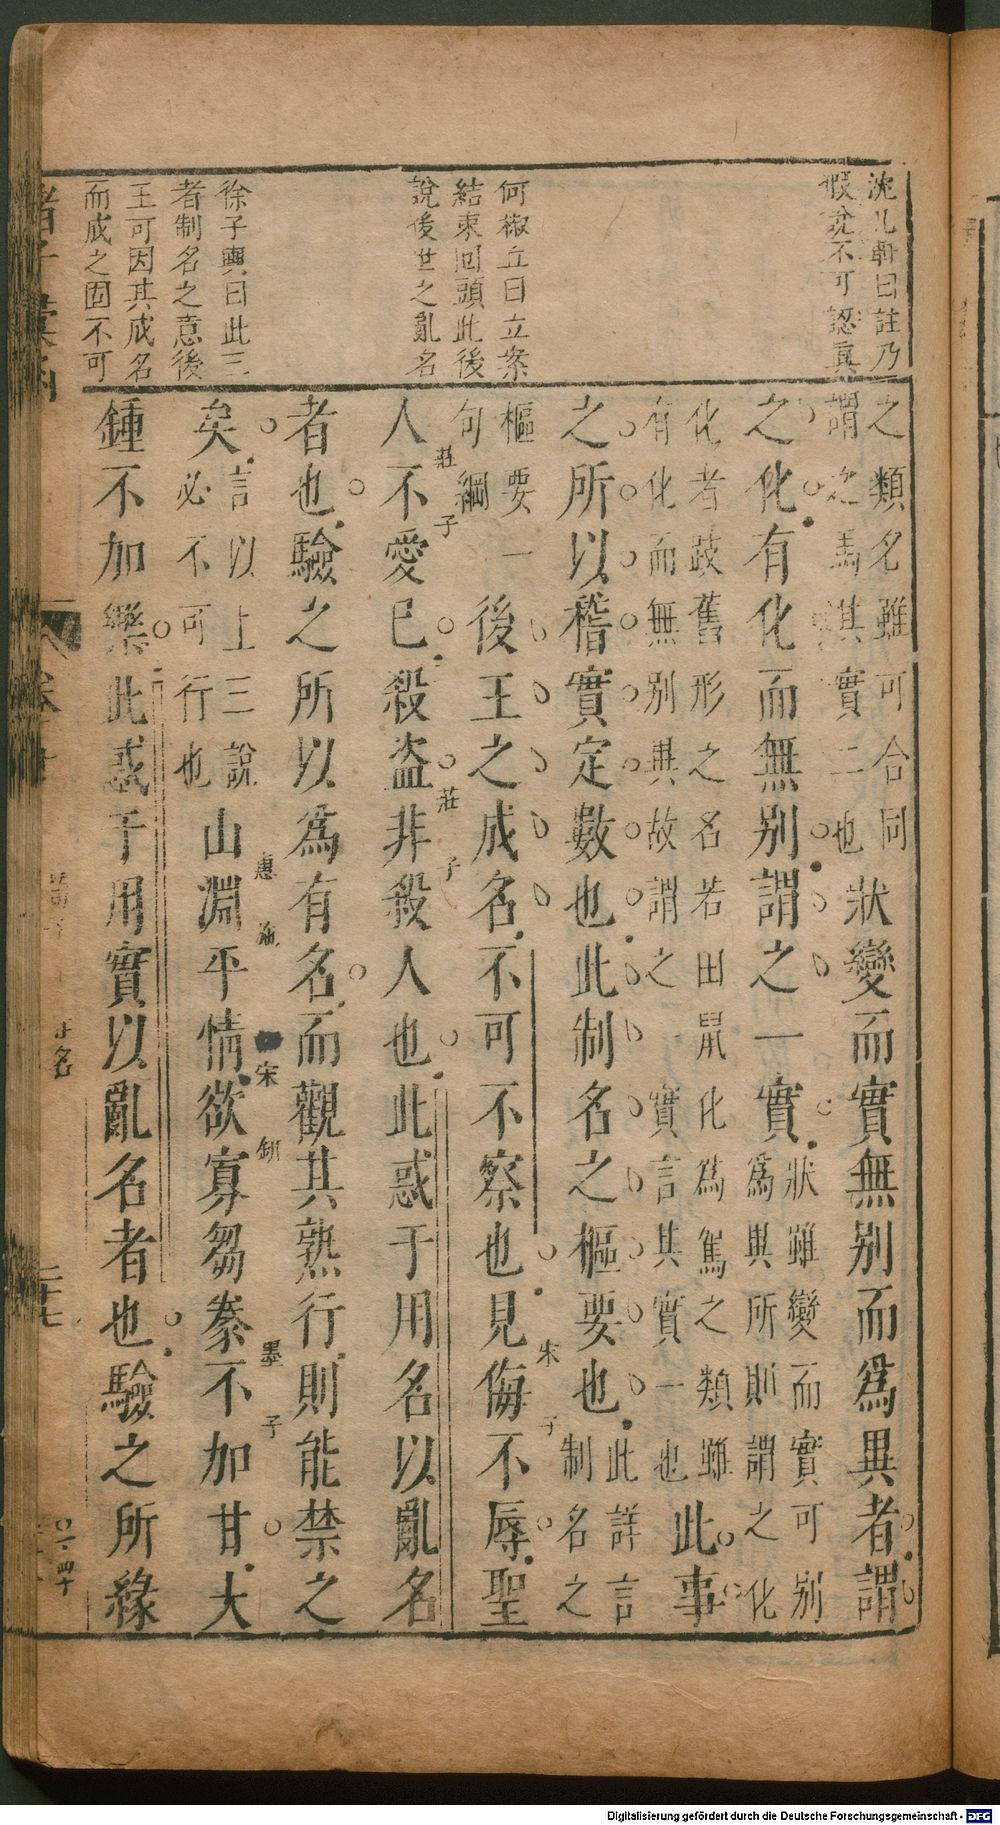 沈几軒曰註乃
假說不可認真
何椒丘曰立案
結束回頭此後
說後世之亂名
徐子與曰此三
者制名之意後
王可因其成名
而成之固不可
之類名雖可合同
謂之馬其實二也
狀變而實無別而為異者謂
之化有化而無別謂之一實
狀雖變而實可別
為與所則謂之化
化者改舊形之名若田鼠化為鴽之類雖
有化而無別異故謂之一實言其實一也
此事
之所以稽實定數也此制名之樞要也
此詳言
制名之
樞要一
句綱
後王之成名不可不察也見侮不辱聖
宋子
人不愛己殺盜非殺人也此惑于用名以亂名
莊子
莊子
者也驗之所以為有名而觀其熟行則能禁之
矣
言以上三說
必不可行也
山淵平情欲寡芻豢不加甘大
惠施
宋鈃
墨子
鍾不加樂此惑于用實以亂名者也驗之所緣
正名
二十七
Digitalisierung gefördert durch die Deutsche Forschungsgemeinschaft - DFG